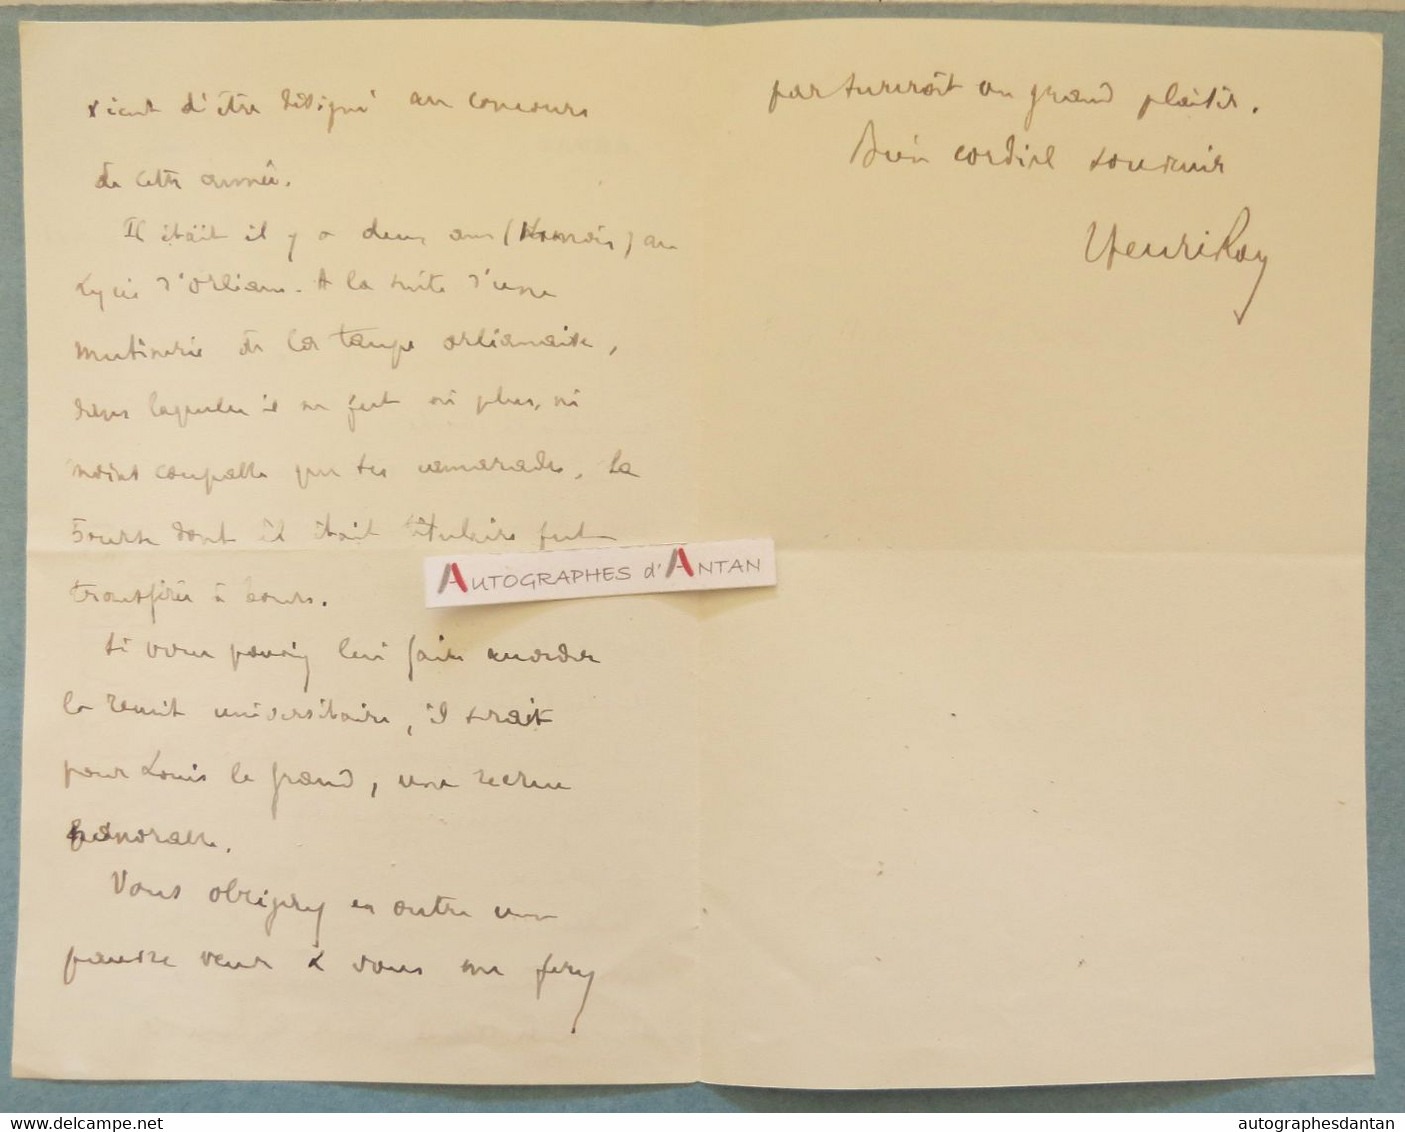 vient d'être désigné au concours
de cette année.
Il était il y a deux ans ( ) au
Lycée d'Orléans. A la suite d'une
mutinerie de la taupe orléanaise,
dans laquelle il ne fut ni plus, ni
moins coupable que ses camarades, la
bourse dont il était titulaire fut
transférée à Tours.
Si vous pouviez lui faire
la université, il serait
pour Louis le Grand, une recrue
honorable.
Vous obligerez en outre une
pauvre veuve & vous me ferez
particulièrement un grand plaisir.
Bien cordial souvenir
Henri Roy
AUTOGRAPHES d'ANTAN
autographesdantan